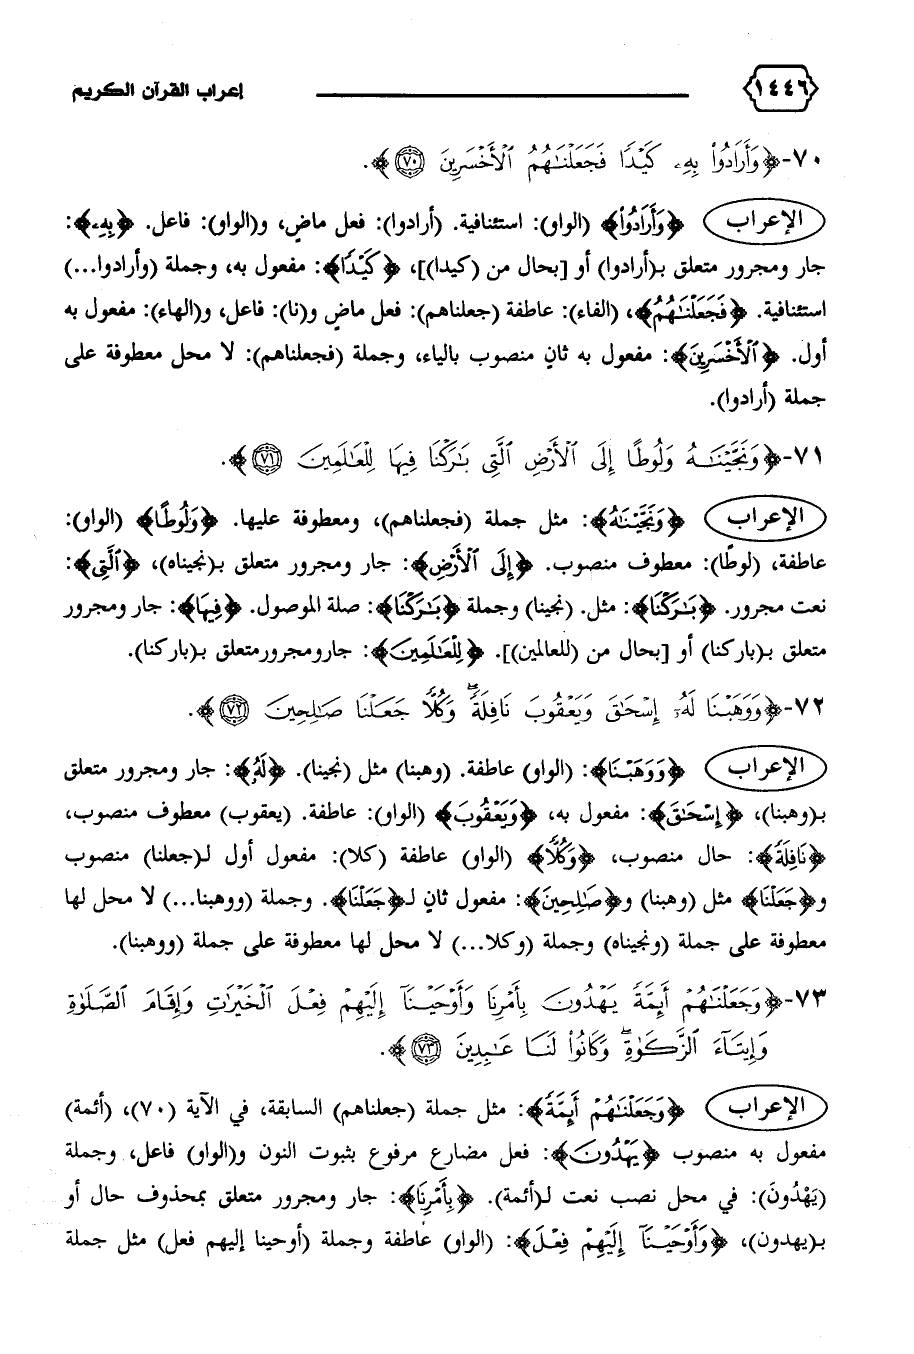 ١٤٤٦ إعراب القرآن الكريم
٧٠-﴿وَأَرَادُوا۟ بِهِۦ كَيْدًا فَجَعَلْنَٰهُمُ ٱلْأَخْسَرِينَ ٧٠﴾.
الإعراب ﴿وَأَرَادُوا۟﴾ (الواو): استئنافية. (أرادوا): فعل ماضٍ، و(الواو): فاعل. ﴿بِهِۦ﴾:
جار ومجرور متعلق بـ(أرادوا) أو [بحال من (كيدا)]، ﴿كَيْدًا﴾: مفعول به، وجملة (وأرادوا...)
استئنافية. ﴿فَجَعَلْنَٰهُمُ﴾، (الفاء): عاطفة (جعلناهم): فعل ماضٍ و(نا): فاعل، و(الهاء): مفعول به
أول. ﴿ٱلْأَخْسَرِينَ﴾: مفعول به ثانٍ منصوب بالياء، وجملة (فجعلناهم): لا محل معطوفة على
جملة (أرادوا).
٧١-﴿وَنَجَّيْنَٰهُ وَلُوطًا إِلَى ٱلْأَرْضِ ٱلَّتِى بَٰرَكْنَا فِيهَا لِلْعَٰلَمِينَ ٧١﴾.
الإعراب ﴿وَنَجَّيْنَٰهُ﴾: مثل جملة (فجعلناهم)، ومعطوفة عليها. ﴿وَلُوطًا﴾ (الواو):
عاطفة، (لوطًا): معطوف منصوب. ﴿إِلَى ٱلْأَرْضِ﴾: جار ومجرور متعلق بـ(نجيناه)، ﴿ٱلَّتِى﴾:
نعت مجرور. ﴿بَٰرَكْنَا﴾: مثل. (نجينا) وجملة ﴿بَٰرَكْنَا﴾: صلة الموصول. ﴿فِيهَا﴾: جار ومجرور
متعلق بـ(باركنا) أو [بحال من (للعالمين)]. ﴿لِلْعَٰلَمِينَ﴾: جارومجرورمتعلق بـ(باركنا).
٧٢-﴿وَوَهَبْنَا لَهُۥٓ إِسْحَٰقَ وَيَعْقُوبَ نَافِلَةً ۖ وَكُلًّا جَعَلْنَا صَٰلِحِينَ ٧٢﴾.
الإعراب ﴿وَوَهَبْنَا﴾: (الواو) عاطفة. (وهبنا) مثل (نجينا). ﴿لَهُۥٓ﴾: جار ومجرور متعلق
بـ(وهبنا)، ﴿إِسْحَٰقَ﴾: مفعول به، ﴿وَيَعْقُوبَ﴾ (الواو): عاطفة. (يعقوب) معطوف منصوب،
﴿نَافِلَةً﴾: حال منصوب، ﴿وَكُلًّا﴾ (الواو) عاطفة (كلا): مفعول أول لـ(جعلنا) منصوب
و﴿جَعَلْنَا﴾ مثل (وهبنا) و﴿صَٰلِحِينَ﴾: مفعول ثانٍ لـ﴿جَعَلْنَا﴾. وجملة (ووهبنا...) لا محل لها
معطوفة على جملة (ونجيناه) وجملة (وكلا...) لا محل لها معطوفة على جملة (ووهبنا).
٧٣-﴿وَجَعَلْنَٰهُمْ أَئِمَّةً يَهْدُونَ بِأَمْرِنَا وَأَوْحَيْنَآ إِلَيْهِمْ فِعْلَ ٱلْخَيْرَٰتِ وَإِقَامَ ٱلصَّلَوٰةِ
وَإِيتَآءَ ٱلزَّكَوٰةِ ۖ وَكَانُوا۟ لَنَا عَٰبِدِينَ ٧٣﴾.
الإعراب ﴿وَجَعَلْنَٰهُمْ أَئِمَّةً﴾: مثل جملة (جعلناهم) السابقة، في الآية (٧٠)، (أئمة)
مفعول به منصوب ﴿يَهْدُونَ﴾: فعل مضارع مرفوع بثبوت النون و(الواو) فاعل، وجملة
(يَهْدُونَ): في محل نصب نعت لـ(أئمة). ﴿بِأَمْرِنَا﴾: جار ومجرور متعلق بمحذوف حال أو
بـ(يهدون)، ﴿وَأَوْحَيْنَآ إِلَيْهِمْ فِعْلَ﴾: (الواو) عاطفة وجملة (أوحينا إليهم فعل) مثل جملة